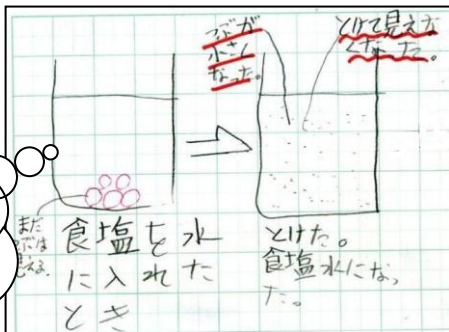 つぶが
小さく
なった。
とけて見えな
くなった。
まだ
つぶは
見える。
食塩を水
に入れた
とき
とけた。
食塩水になっ
た。